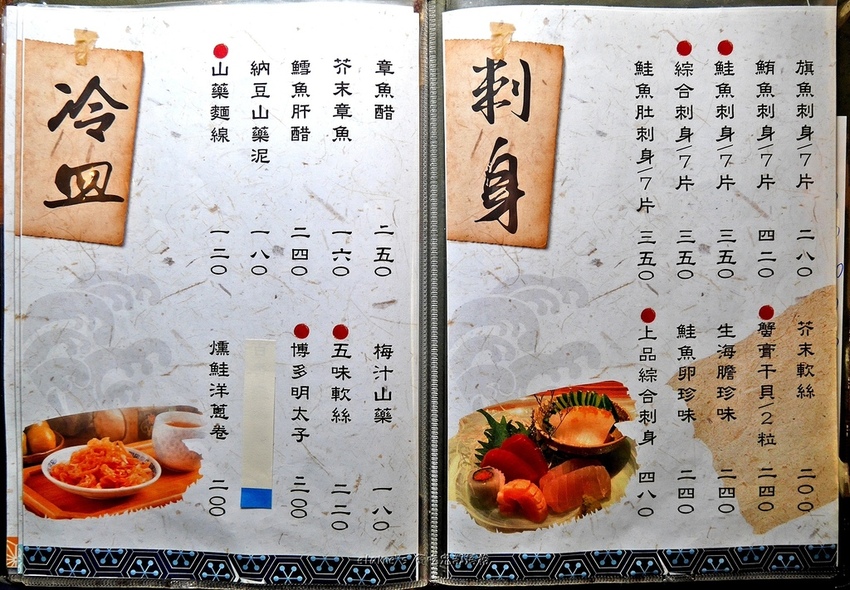 刺身
旗魚刺身/7片 二八〇
鮪魚刺身/7片 四二〇
鮭魚刺身/7片 三五〇
綜合刺身/7片 三五〇
鮭魚肚刺身/7片 三五〇
芥末軟絲 二〇〇
蟹膏干貝/2粒 二四〇
生海膽珍味 二四〇
鮭魚卵珍味 二四〇
上品綜合刺身 四八〇
冷皿
章魚醋 二五〇
芥末章魚 一六〇
鱈魚肝醋 二四〇
納豆山藥泥 一八〇
山藥麵線 一二〇
梅汁山藥 一八〇
五味軟絲 二二〇
博多明太子 三〇〇
燻鮭洋蔥卷 二〇〇